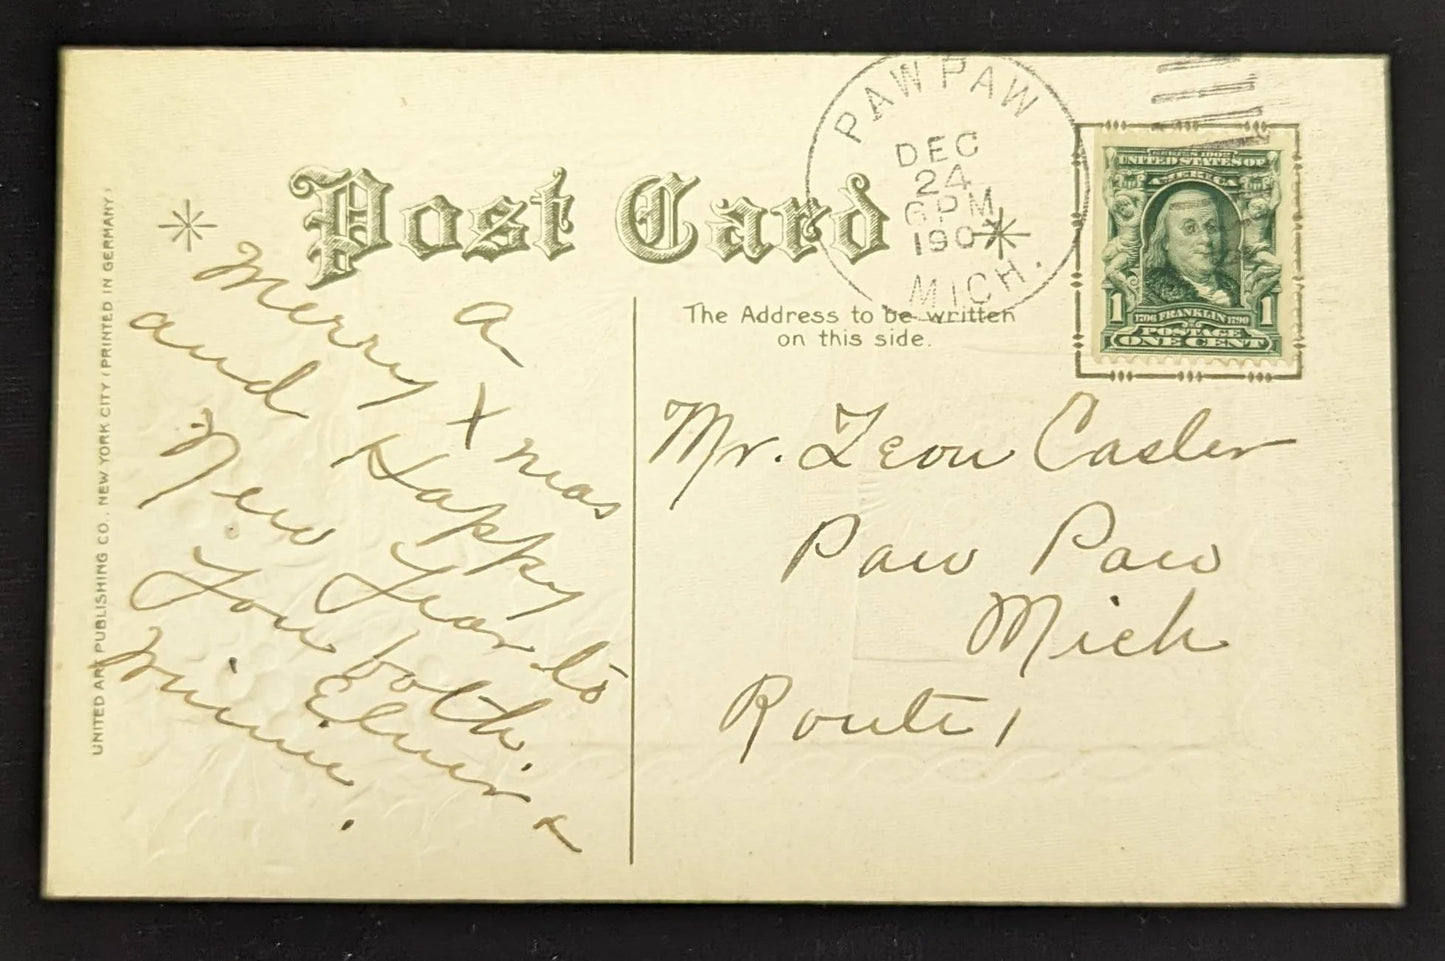 Post Card
PAW PAW
DEC
24
6 PM
1907
MICH.
SERIES 1902
UNITED STATES OF
AMERICA
1 1
1706 FRANKLIN 1790
POSTAGE
ONE CENT
The Address to be written
on this side.
UNITED ART PUBLISHING CO., NEW YORK CITY (PRINTED IN GERMANY)
a
Merry Xmas
and Happy
New Year to
You both.
Elmer &
Minnie.
Mr. Leon Casler
Paw Paw
Mich
Route 1